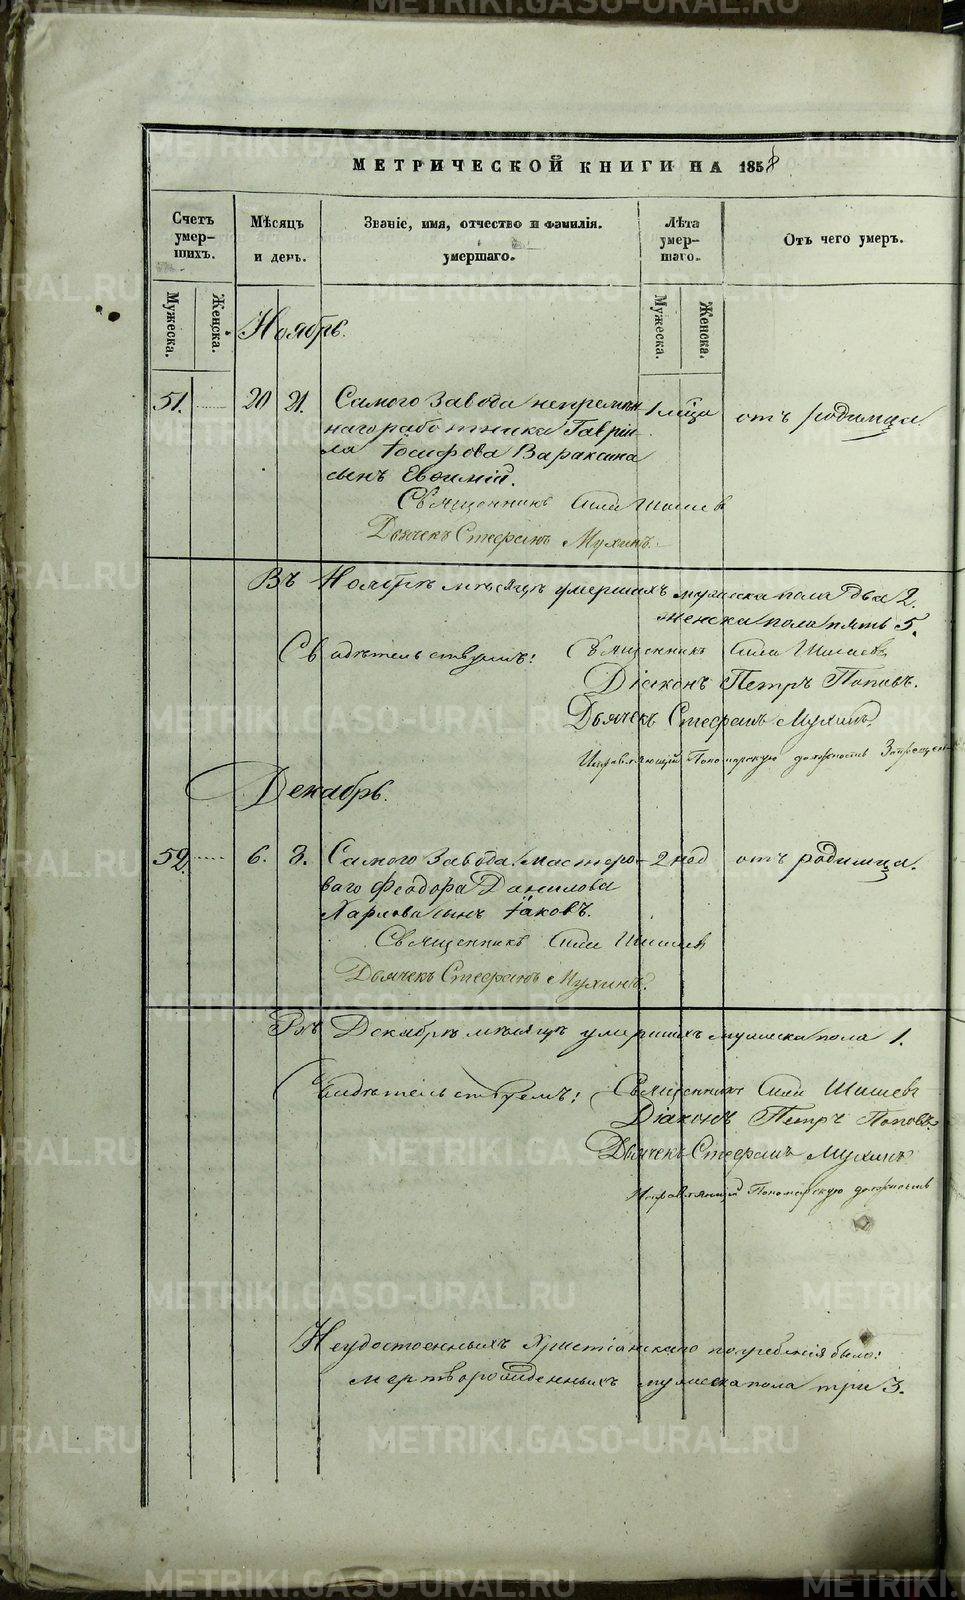 МЕТРИЧЕСКОЙ КНИГИ НА 1858
Счетъ умер- шихъ.
Мѣсяцъ и день.
Званіе, имя, отчество и фамилія. умершаго.
Лѣта умер- шаго.
Отъ чего умеръ.
Мужеска.
Женска.
Мужеска.
Женска.
Ноябрь.
51. 20 21. Самого завода непремѣн- отъ родимца.
наго работника Гаврі-
ла Іосифова Вараксина
сынъ Евѳимій.
Священникъ Сила Шишевъ
Дьячекъ Стефанъ Мухинъ.
Въ Ноябрѣ мѣсяцѣ умершихъ мужеска пола два 2.
женска пола пять 5.
Свидѣтельствуемъ: Священникъ Сила Шишевъ
Діаконъ Петръ Поповъ.
Дьячекъ Стефанъ Мухинъ.
Исправляющій Пономарскую должность
Декабрь.
52. 6. 8. Самого завода мастеро- 2 год отъ родимца.
ваго Феодора Данилова
Харлова сынъ Іаковъ.
Священникъ Сила Шишевъ
Дьячекъ Стефанъ Мухинъ.
Въ Декабрѣ мѣсяцѣ умершихъ мужеска пола 1.
Свидѣтельствуемъ: Священникъ Сила Шишевъ
Діаконъ Петръ Поповъ.
Дьячекъ Стефанъ Мухинъ
Исправляющій Пономарскую должность
Неудостоенныхъ Христіанскаго погребенія было:
мертворожденныхъ мужеска пола три 3.
METRIKI.GASO-URAL.RU